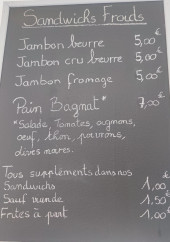 Sandwichs Froids
Jambon beurre 5,00€
Jambon cru beurre 5,00€
Jambon fromage 5,00€
Pain Bagnat* 7,00€
*Salade, Tomates, oignons,
oeuf, thon, poivrons,
olives noires.
Tous suppléments dans nos
Sandwichs 1,00€
Sauf viande 1.50€
Frites à part 1,00€